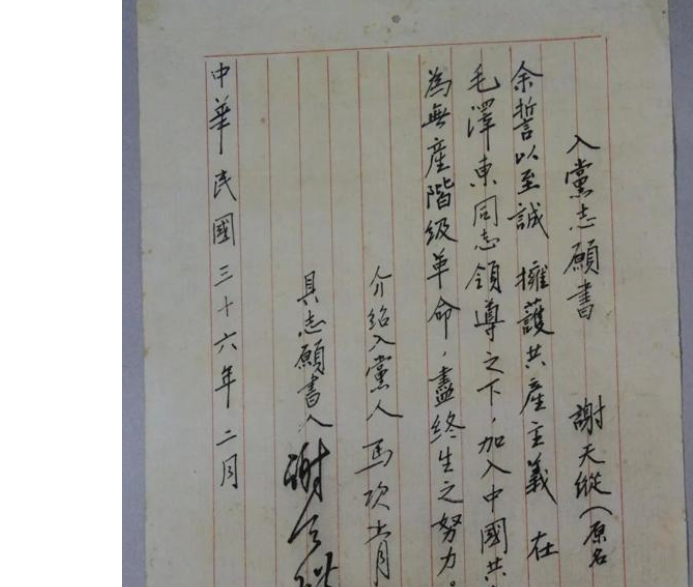 入黨志願書 謝天縱（原名
余誓以至誠 擁護共産主義 在
毛澤東同志領導之下，加入中國共
為無産階級革命，盡終生之努力。
介紹入黨人 馬次青
具志願書人 謝天
中華民國三十六年二月